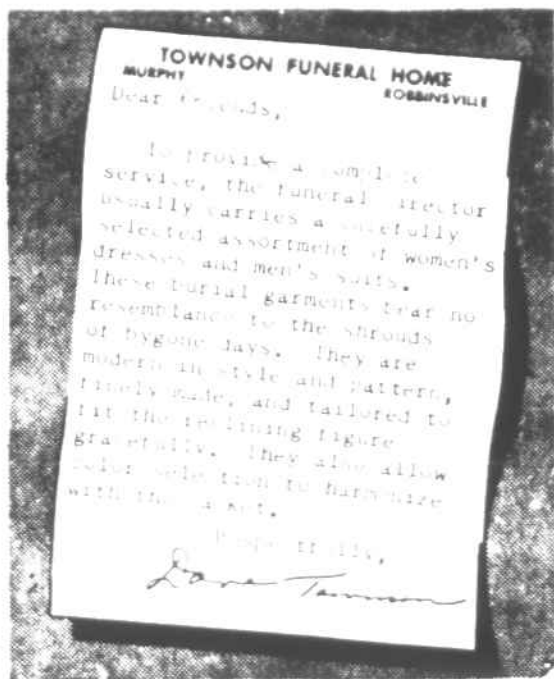 TOWNSON FUNERAL HOME
MURPHY ROBBINSVILLE
Dear Friends,
To provide a complete
service, the funeral director
usually carries a carefully
selected assortment of women's
dresses and men's suits.
These burial garments bear no
resemblance to the shrouds
of bygone days. They are
modern in style and pattern,
finely made, and tailored to
fit the reclining figure
gracefully. They also allow
color selection to harmonize
with the casket.
Respectfully,
Dave Townson